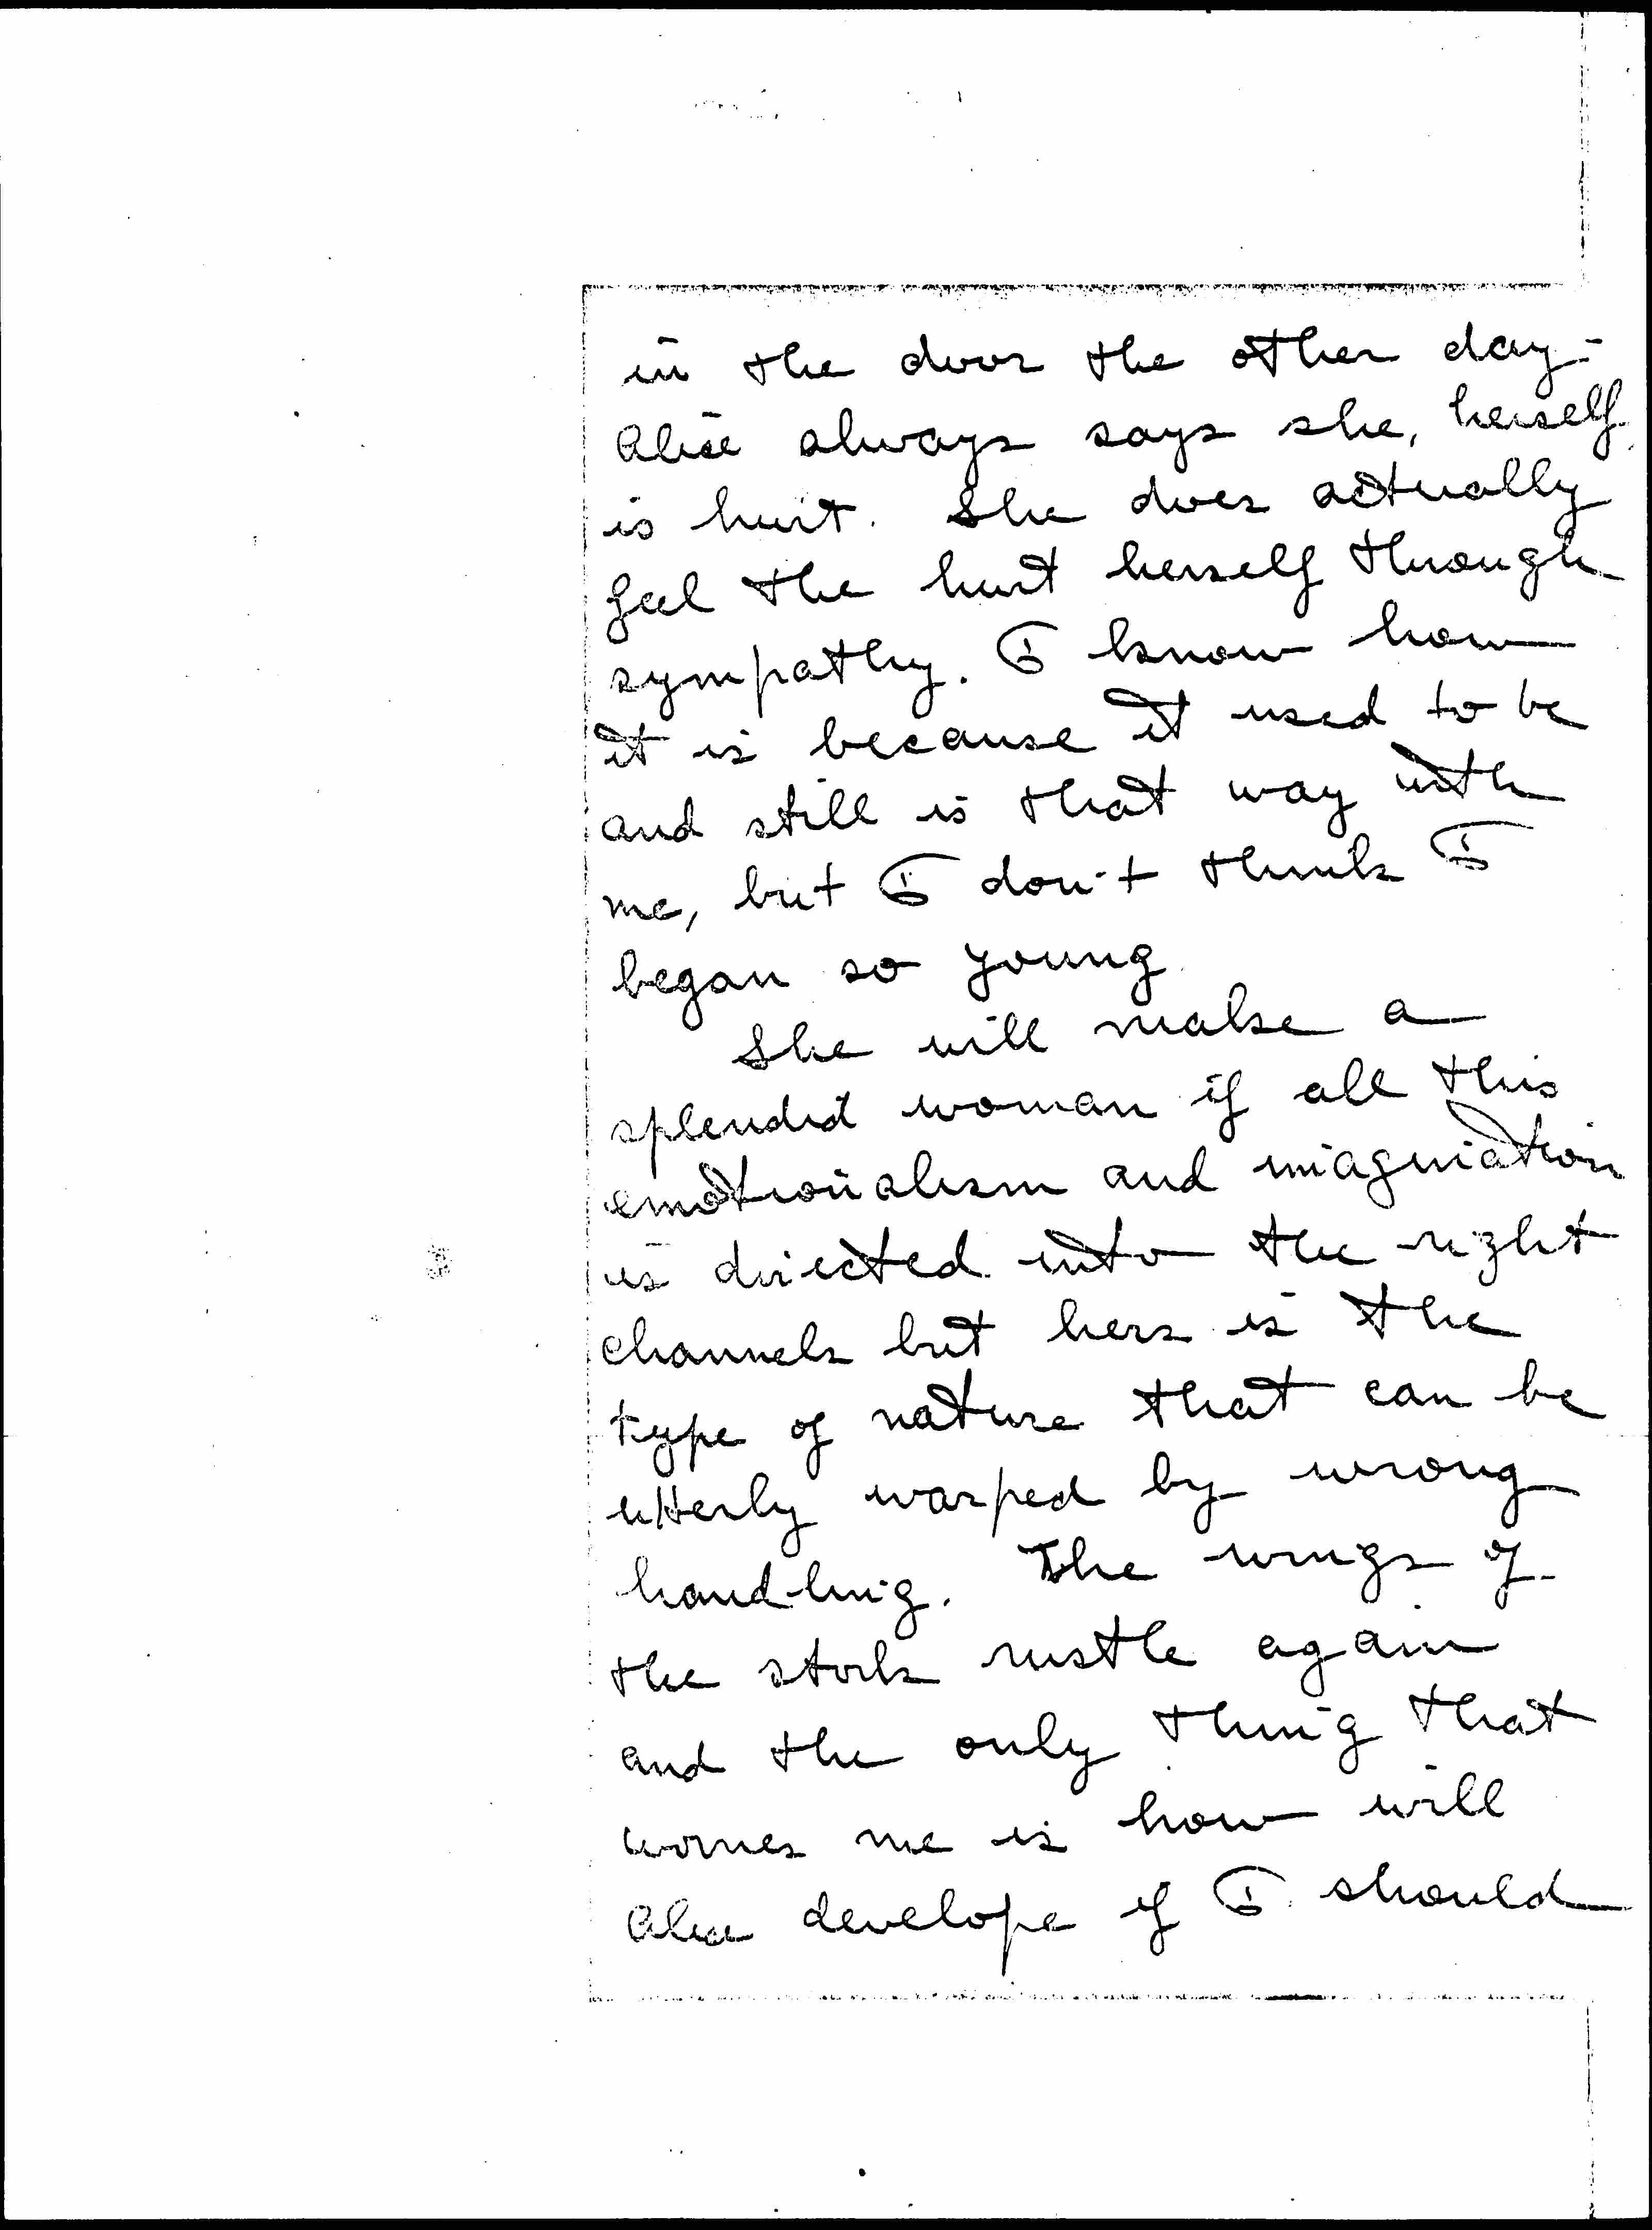 in the door the other day -
Alice always says she, herself,
is hurt. She does actually
feel the hurt herself through
sympathy. I know how
it is because it used to be
and still is that way with
me, but I don't think I
began so young.
She will make a
splendid woman if all this
emotionalism and imagination
is directed into the right
channels but hers is the
type of nature that can be
utterly warped by wrong
handling. The wings of
the stork rustle again
and the only thing that
worries me is how will
Alice develope if I should